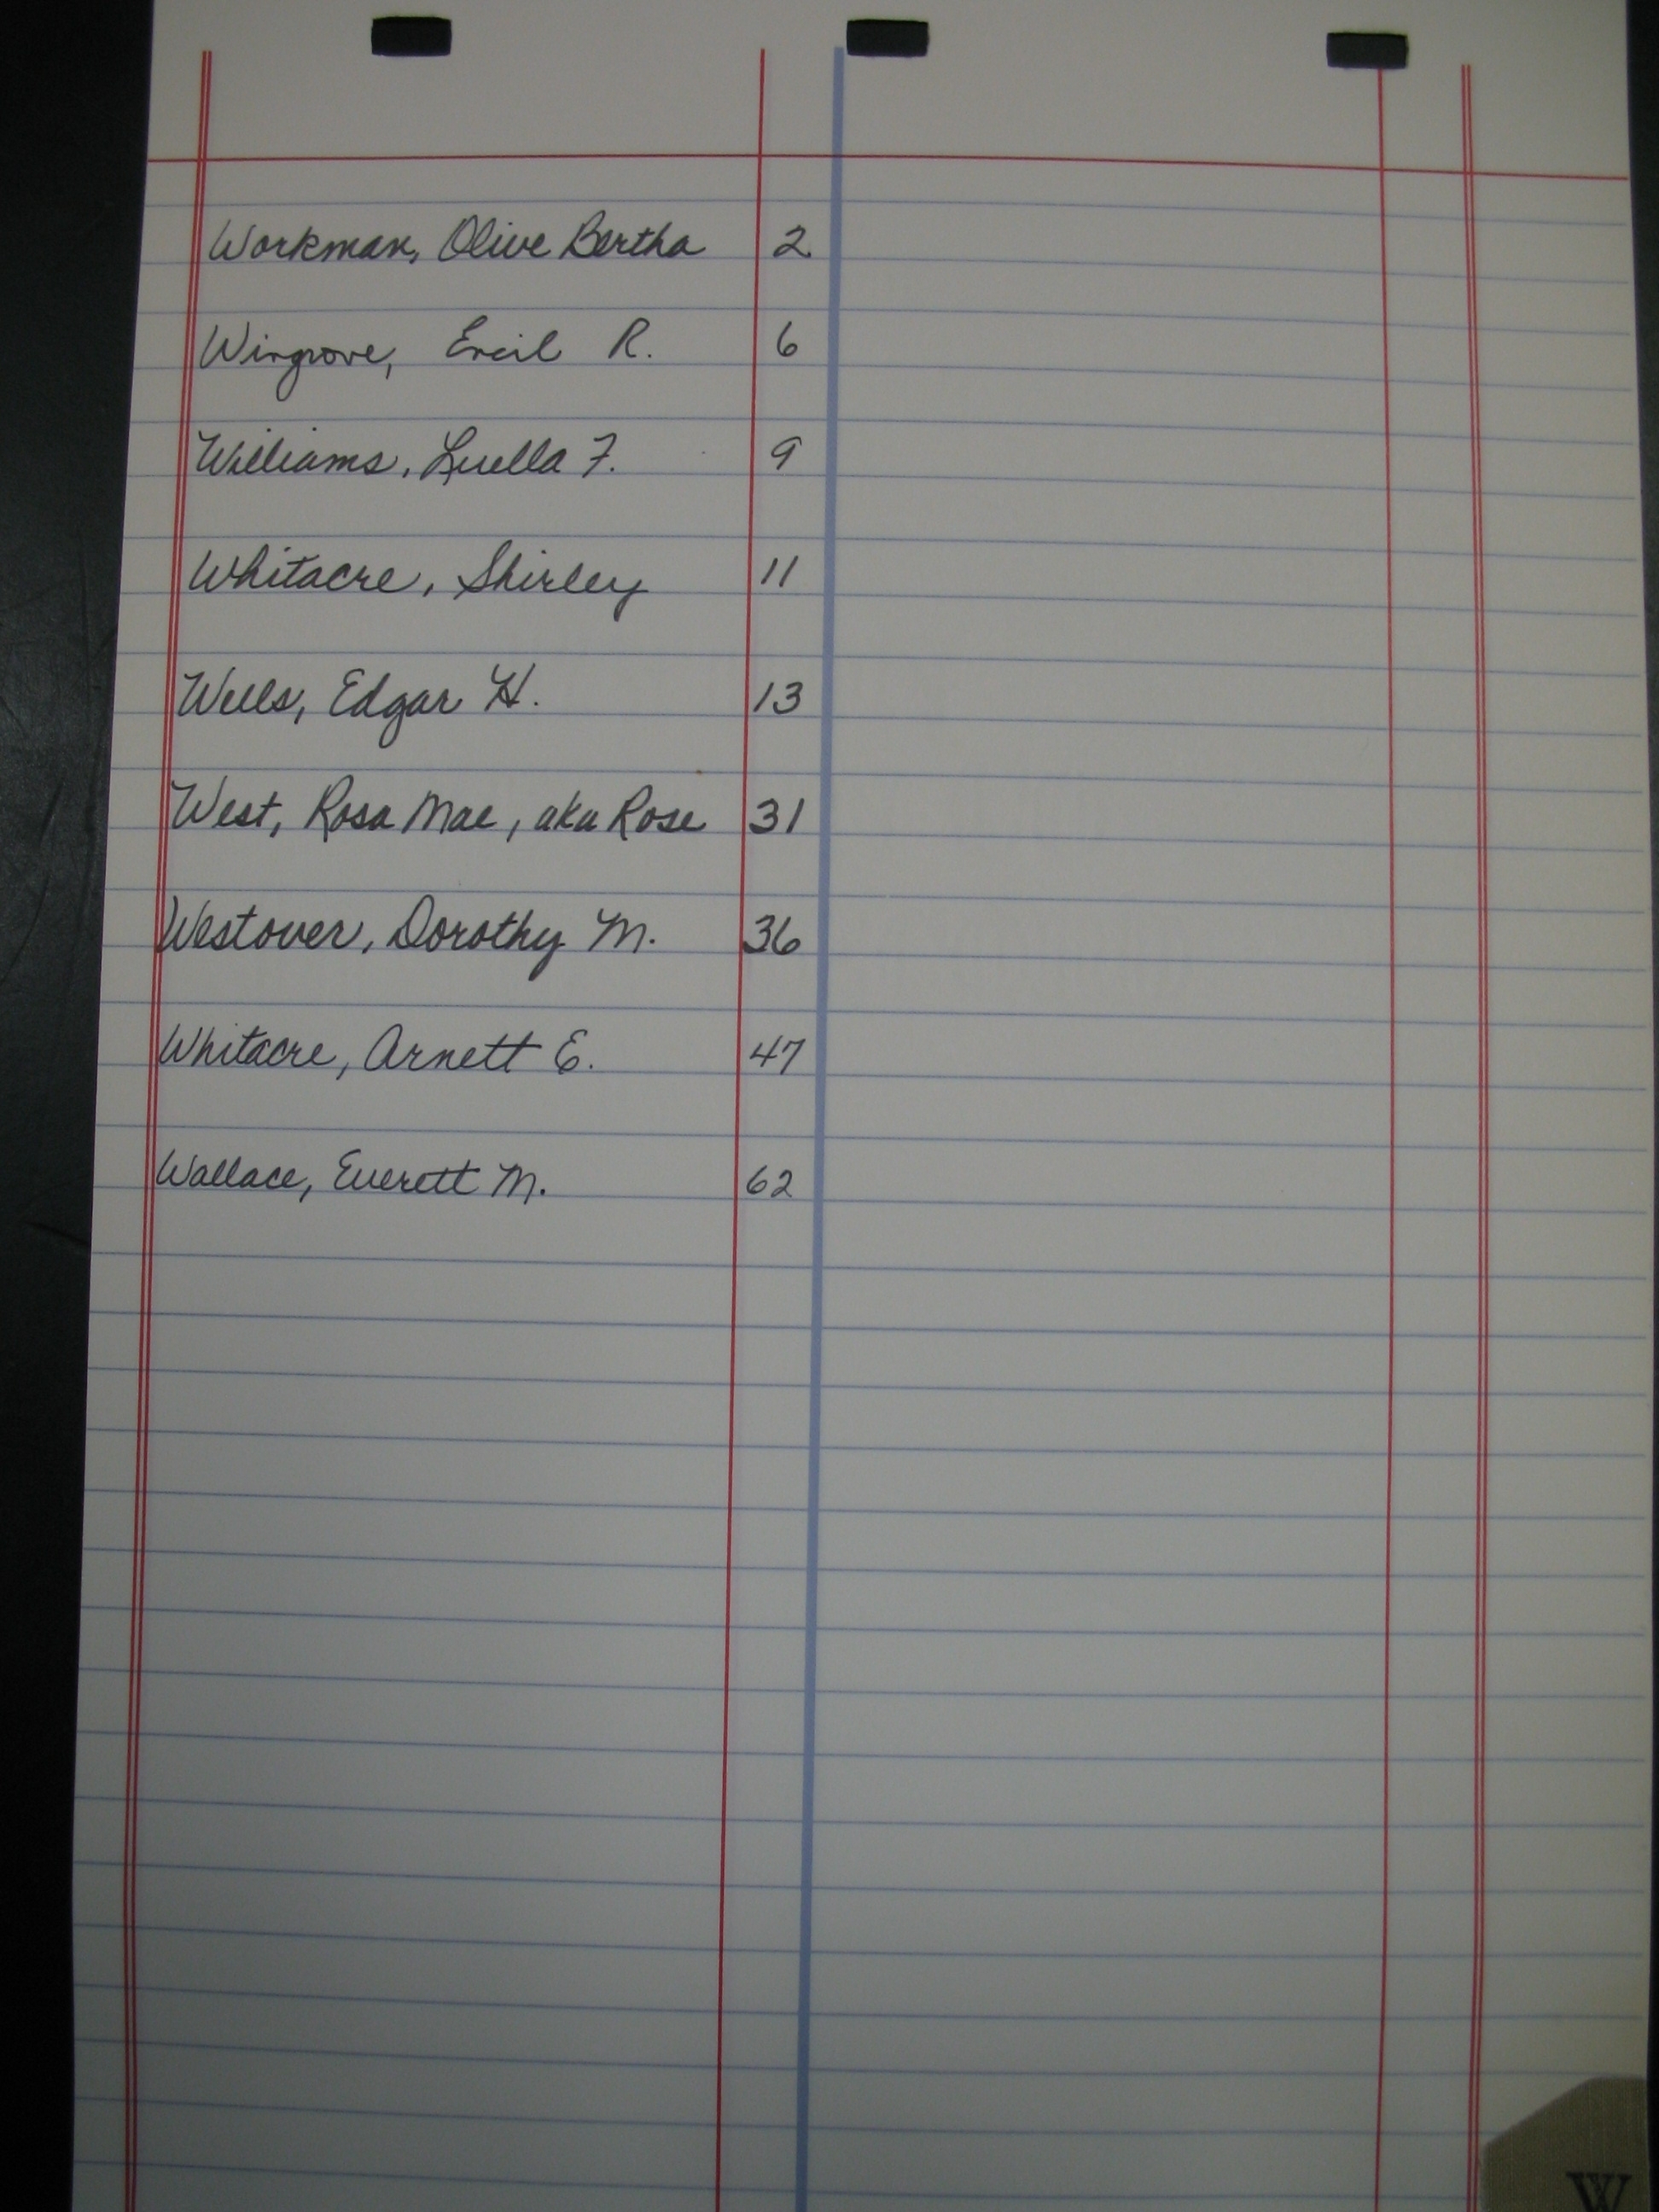 Workman, Olive Bertha 2
Wingrove, Ercil R. 6
Williams, Luella F. 9
Whitacre, Shirley 11
Wells, Edgar H. 13
West, Rosa Mae, aka Rose 31
Westover, Dorothy M. 36
Whitacre, Arnett E. 47
Wallace, Everett M. 62
W